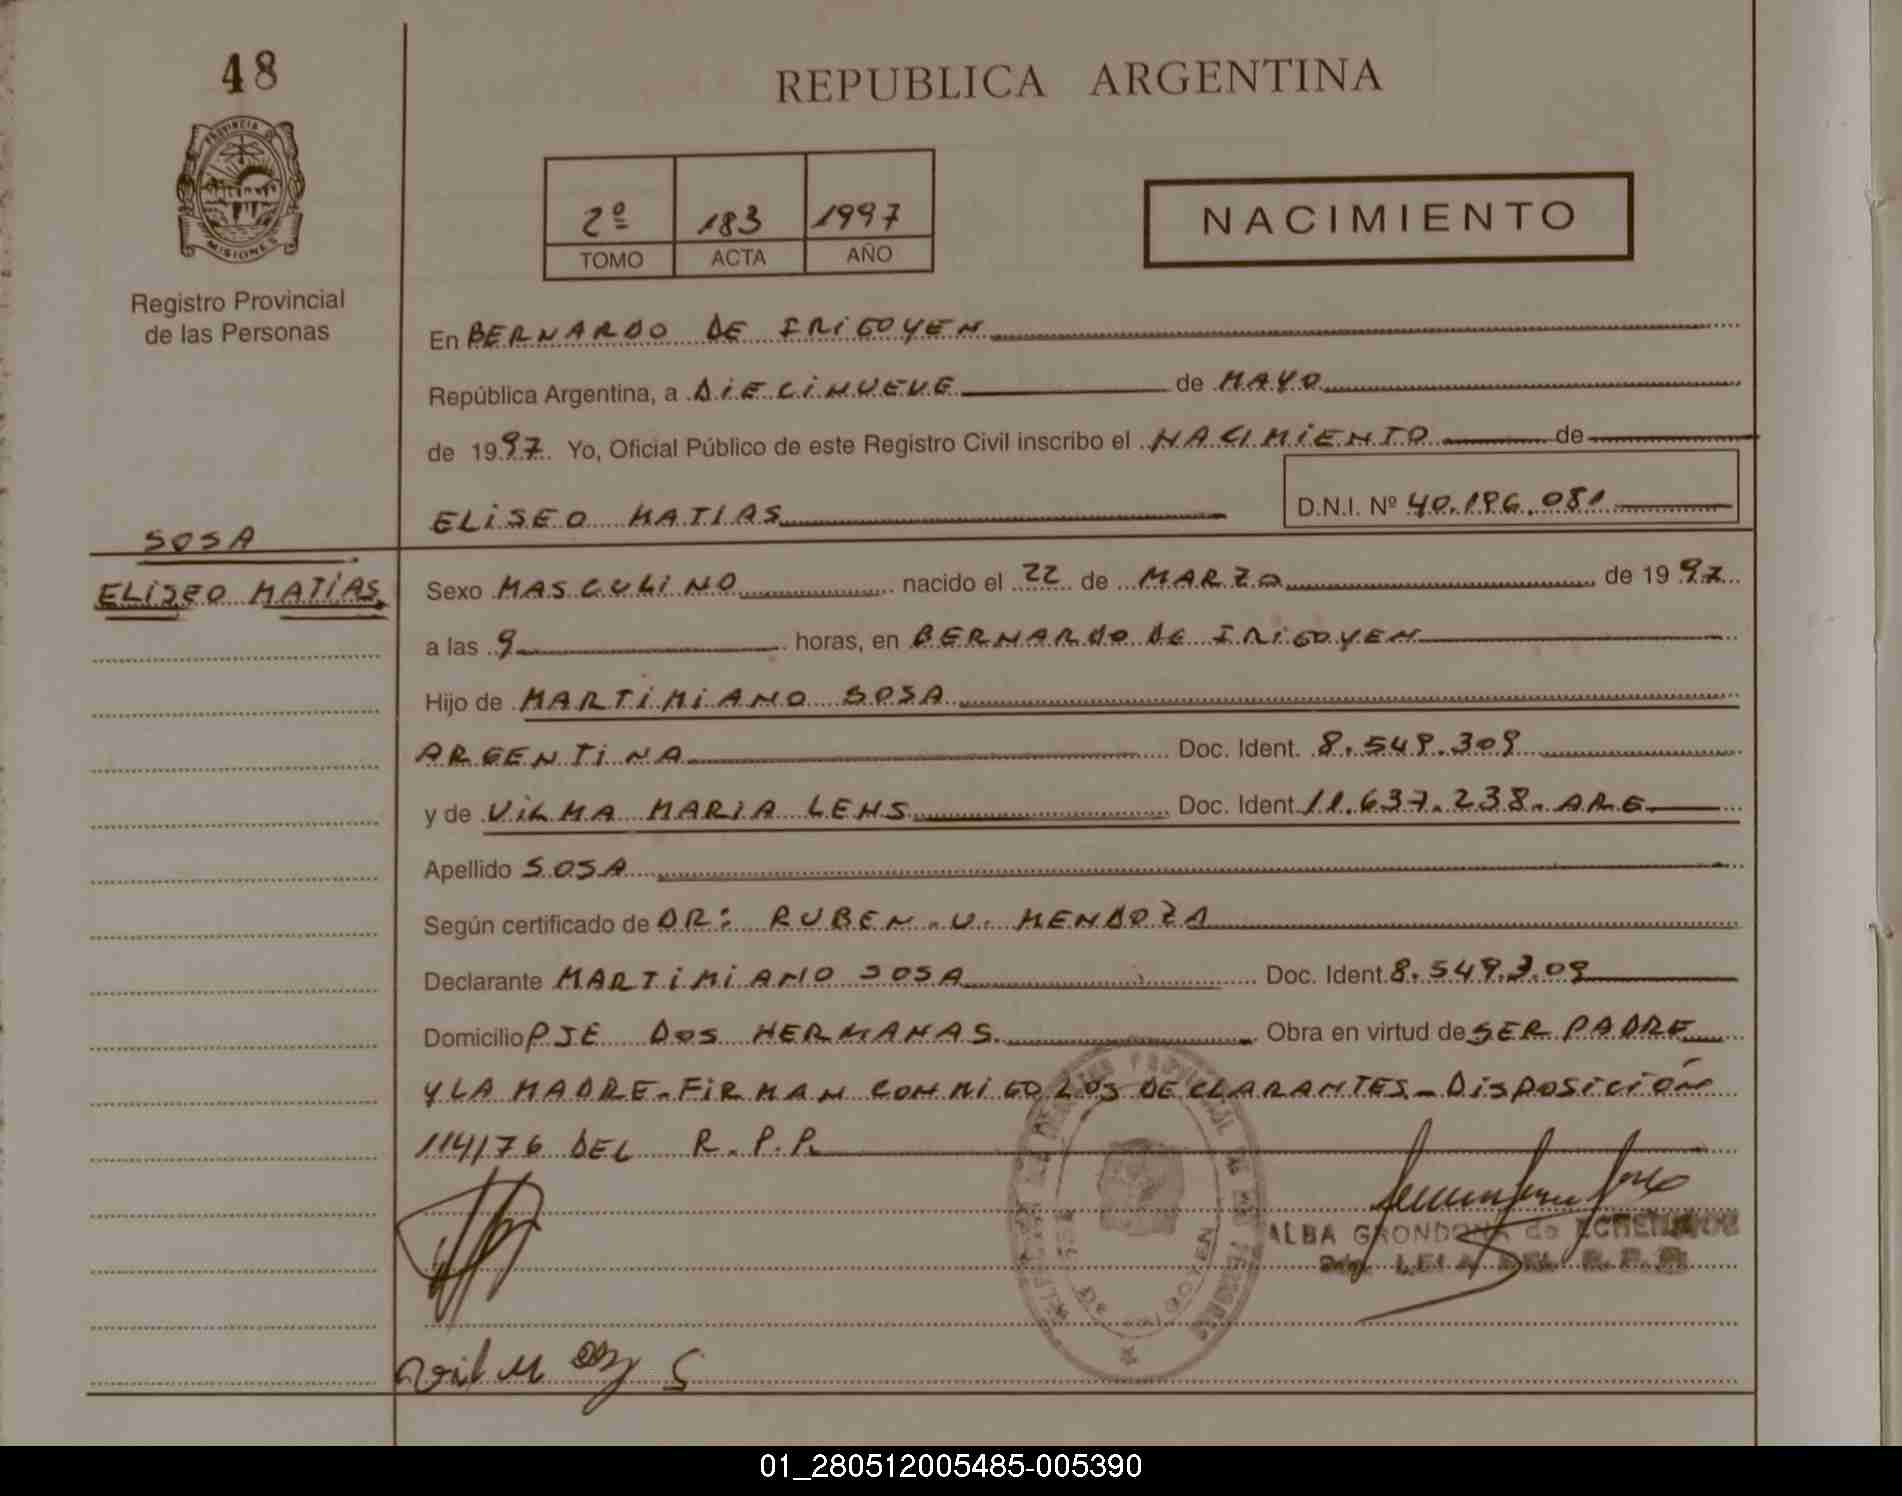 48
PROVINCIA DE
MISIONES
Registro Provincial
de las Personas
REPUBLICA ARGENTINA
2º 183 1997
TOMO ACTA AÑO
NACIMIENTO
En BERNARDO DE IRIGOYEN
República Argentina, a DIECINUEVE de MAYO
de 1997. Yo, Oficial Público de este Registro Civil inscribo el NACIMIENTO de
ELISEO MATIAS D.N.I. Nº 40.196.081
SOSA
ELISEO MATÍAS
Sexo MASCULINO nacido el 22 de MARZO de 1997
a las 9 horas, en BERNARDO DE IRIGOYEN
Hijo de MARTIMIANO SOSA
ARGENTINA Doc. Ident. 8.549.309
y de VILMA MARIA LENS Doc. Ident. 11.637.238. ARG
Apellido SOSA
Según certificado de DR: RUBEN. V. MENDOZA
Declarante MARTIMIANO SOSA Doc. Ident. 8.549.309
Domicilio PJE DOS HERMANAS. Obra en virtud de SER PADRE
Y LA MADRE. FIRMAN CONMIGO LOS DECLARANTES - DISPOSICIÓN
114/76 DEL R. P. P.
ALBA GRONDONA de
DEL R. P. P.
01_280512005485-005390